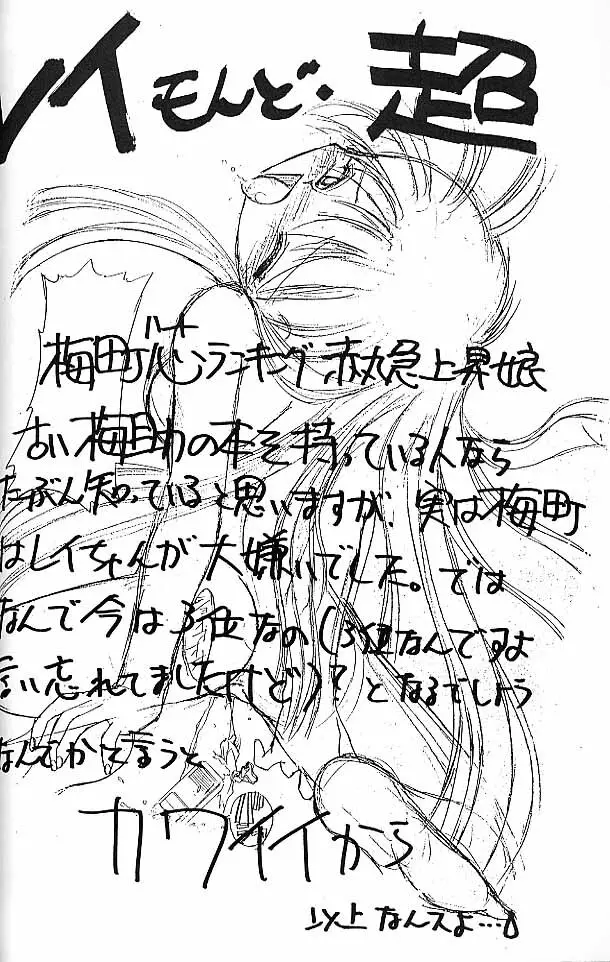 レイもんど・超
ハート
梅町心ランキング赤丸急上昇娘
古い梅町の本を持っている人なら
たぶん知っていると思いますが、実は梅町
はレイちゃんが大嫌いでした。では
なんで今は3位なの(3位なんですよ
言い忘れてましたけど)?となるでしょう
なんでかと言うと
カワイイから
以上なんスよ…。